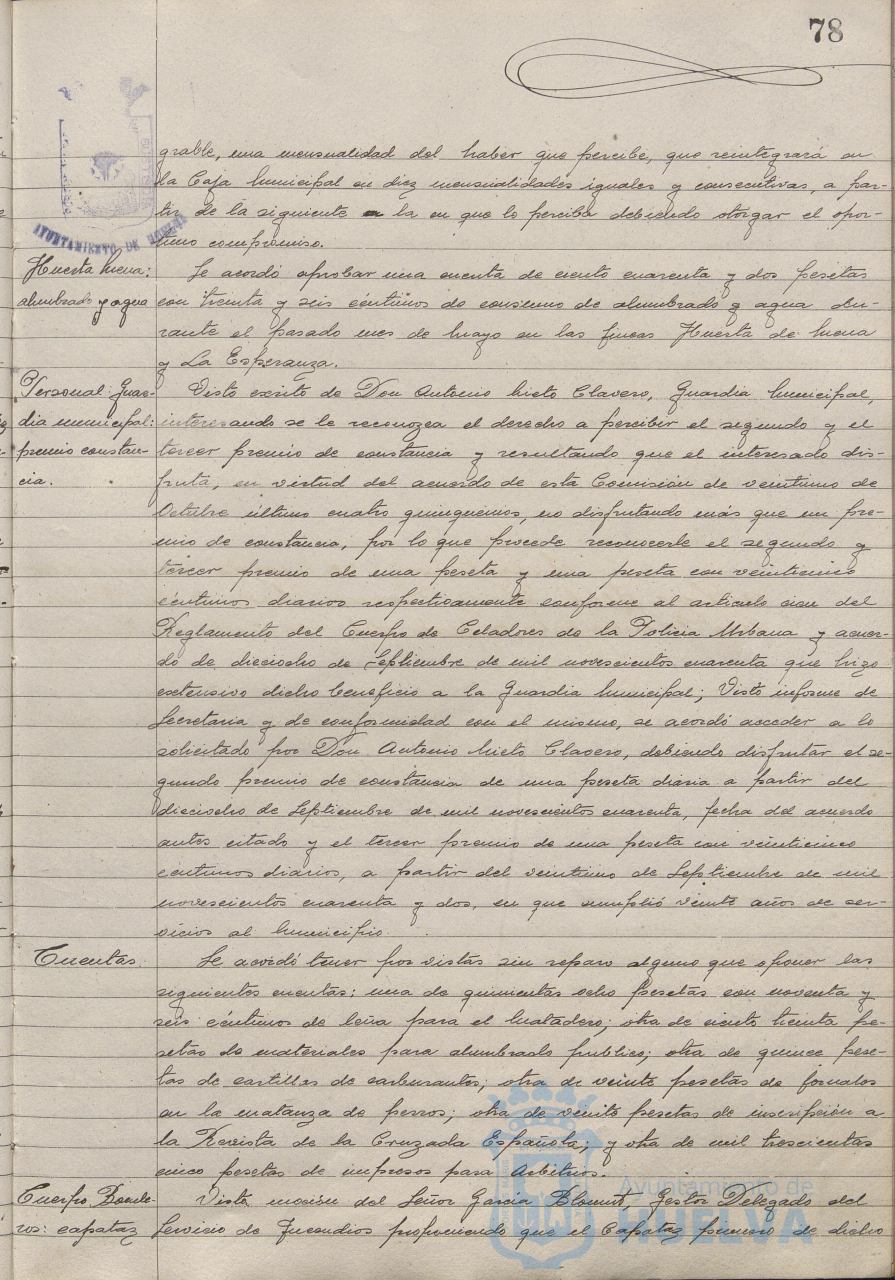 78
AYUNTAMIENTO DE HUELVA
grable, una mensualidad del haber que percibe, que reintegrará en
la Caja Municipal en diez mensualidades iguales y consecutivas, a par-
tir de la siguiente a la en que lo perciba debiendo otorgar el opor-
tuno compromiso.
Huerta Mena:
alumbrado y agua
Se acordó aprobar una cuenta de ciento cuarenta y dos pesetas
con treinta y seis céntimos de consumo de alumbrado y agua du-
rante el pasado mes de Mayo en las fincas Huerta de Mena
y La Esperanza.
Personal: Guar-
dia municipal:
premio constan-
cia.
Visto escrito de Don Antonio Nieto Clavero, Guardia Municipal,
interesando se le reconozca el derecho a percibir el segundo y el
tercer premio de constancia y resultando que el interesado dis-
fruta, en virtud del acuerdo de esta Comisión de veintiuno de
Octubre último cuatro quinquenios, no disfrutando más que un pre-
mio de constancia, por lo que procede reconocerle el segundo y
tercer premio de una peseta y una peseta con veinticinco
céntimos diarios respectivamente conforme al artículo cien del
Reglamento del Cuerpo de Celadores de la Policía Urbana y acuer-
do de dieciocho de Septiembre de mil novescientos cuarenta que hizo
extensivo dicho beneficio a la Guardia Municipal; Visto informe de
Secretaria y de conformidad con el mismo, se acordó acceder a lo
solicitado por Don Antonio Nieto Clavero, debiendo disfrutar el se-
gundo premio de constancia de una peseta diaria a partir del
dieciocho de Septiembre de mil novescientos cuarenta, fecha del acuerdo
antes citado y el tercer premio de una peseta con veinticinco
céntimos diarios, a partir del veintiuno de Septiembre de mil
novescientos cuarenta y dos, en que cumplió veinte años de ser-
vicios al Municipio.
Cuentas
Se acordó tener por vistas sin reparo alguno que oponer las
siguientes cuentas: una de quinientas ocho pesetas con noventa y
seis céntimos de leña para el Matadero; otra de ciento treinta pe-
setas de materiales para alumbrado publico; otra de quince pese-
tas de cartillas de carburantes; otra de veinte pesetas de jornales
en la matanza de perros; otra de veinte pesetas de inscripción a
la Revista de la Cruzada Española; y otra de mil trescientas
cinco pesetas de impresos para Arbitrios.
Cuerpo Bombe-
ros: capataz
Vista moción del Señor García Gestor Delegado del
Servicio de Incendios proponiendo que el Capataz primero de dicho
Ayuntamiento de
HUELVA